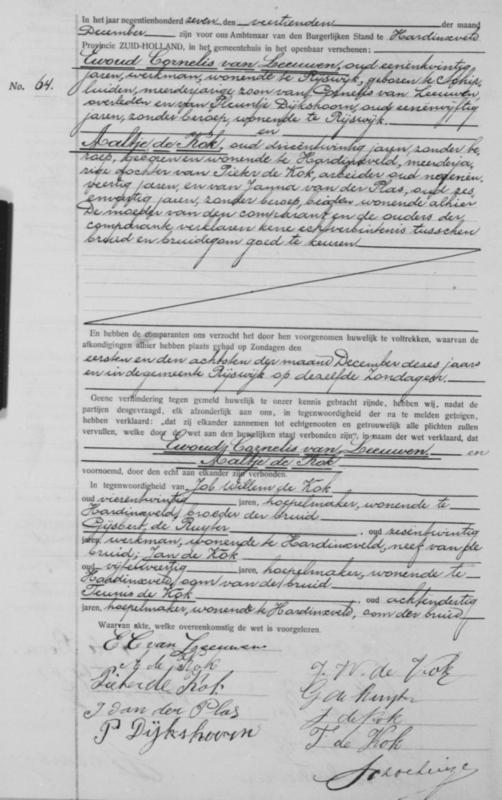 In het jaar negentienhonderd zeven, den veertienden der maand
December zijn voor ons Ambtenaar van den Burgerlijken Stand te Hardinxveld
Provincie ZUID-HOLLAND, in het gemeentehuis in het openbaar verschenen:
Ewoud Cornelis van Leeuwen, oud eenentwintig
jaren, werkman, wonende te Rijswijk, geboren te Schip-
No. 64. luiden, meerderjarige zoon van Cornelis van Leeuwen,
overleden en van Pleuntje Dijkshoorn, oud eenenvijftig
jaren, zonder beroep, wonende te Rijswijk.
en
Aaltje de Kok, oud drieëntwintig jaren, zonder be-
roep, geboren en wonende te Hardinxveld, meerderja-
rige dochter van Pieter de Kok, arbeider oud negenen-
veertig jaren, en van Janna van der Plas, oud zes
envijftig jaren, zonder beroep, beiden wonende alhier
De moeder van den comparant en de ouders der
comparante verklaren deze echtverbintenis tusschen
bruid en bruidegom goed te keuren
En hebben de comparanten ons verzocht het door hen voorgenomen huwelijk te voltrekken, waarvan de
afkondigingen alhier hebben plaats gehad op Zondagen den
eersten en den achtsten der maand December dezes jaars
en in de gemeente Rijswijk op dezelfde Zondagen.
Geene verhindering tegen gemeld huwelijk te onzer kennis gebracht zijnde, hebben wij, nadat de
partijen desgevraagd, elk afzonderlijk aan ons, in tegenwoordigheid der na te melden getuigen,
hebben verklaard: „dat zij elkander aannemen tot echtgenooten en getrouwelijk alle plichten zullen
vervullen, welke door de wet aan den huwelijken staat verbonden zijn", in naam der wet verklaard, dat
Ewoud Cornelis van Leeuwen en
Aaltje de Kok
voornoemd, door den echt aan elkander zijn verbonden.
In tegenwoordigheid van Job Willem de Kok
oud vierentwintig jaren, hoepelmaker, wonende te
Hardinxveld, broeder der bruid
Gijsbert de Ruyter, oud zesëntwintig
jaren, werkman, wonende te Hardinxveld, neef van de
bruid; Jan de Kok
oud vijfenveertig jaren, hoepelmaker, wonende te
Hardinxveld, oom van de bruid
Teunis de Kok, oud achtendertig
jaren, hoepelmaker, wonende te Hardinxveld, oom der bruid
Waarvan akte, welke overeenkomstig de wet is voorgelezen.
E C van Leeuwen
A de Kok
Pieter de Kok
J van der Plas
P Dijkshoorn
J. W. de Kok
G de Ruyter
J de Kok
T de Kok